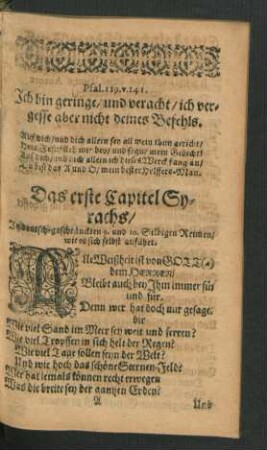 Psal. 119. v. 141.
Ich bin geringe/ und veracht/ ich ver-
gesse aber nicht deines Befehls.
Auf dich/ und dich allein sey all mein thun gericht/
HErr JEsu
Auf dich/ und dich allein ich dieses Werck fang an/
Du bist das A und O/ mein bester Helffers-Man.
Das erste Capitel Sy-
rachs/
9. und 10. Selbigen Reimen/
wie es sich selbst anfähet.
ALle Weißheit ist von GOTT (a)
dem HERREN/
Bleibt auch bey Ihm immer für
und für.
Denn wer hat doch nur gesaget
dir
Wie viel Sand im Meer sey weit und ferren?
Wie viel Tropffen in sich helt der Regen?
Wie viel Tage sollen seyn der Welt?
Und wie hoch das schöne Sternen-Feld?
Wer hat jemals können recht erwegen
Was die breite sey der gantzen Erden?
A Und